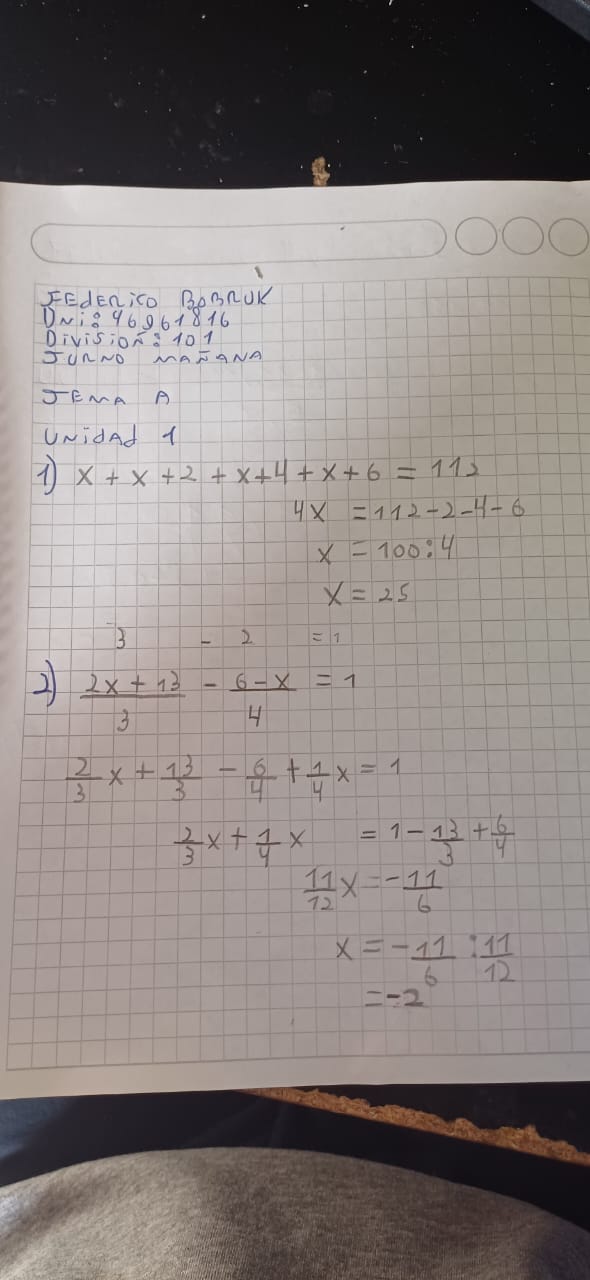 FEdERico BOBRUK
Dni: 46961816
Division: 101
TURNO MAÑANA
TEMA A
UNidAd 1
1) x + x + 2 + x + 4 + x + 6 = 112
4x = 112 - 2 - 4 - 6
x = 100 : 4
x = 25
3 - 2 = 1
2) (2x + 13)/3 - (6 - x)/4 = 1
2/3 x + 13/3 - 6/4 + 1/4 x = 1
2/3 x + 1/4 x = 1 - 13/3 + 6/4
11/12 x = - 11/6
x = - 11/6 : 11/12
= -2